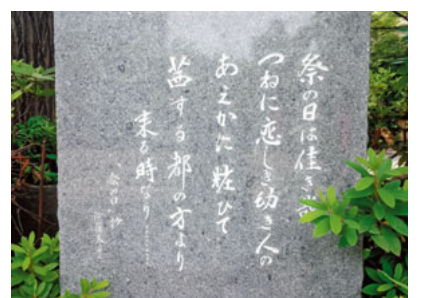 祭の日は佳き
つねに恋しき幼き人の
あえかに粧ひて
茜する都の方より
来る時なり